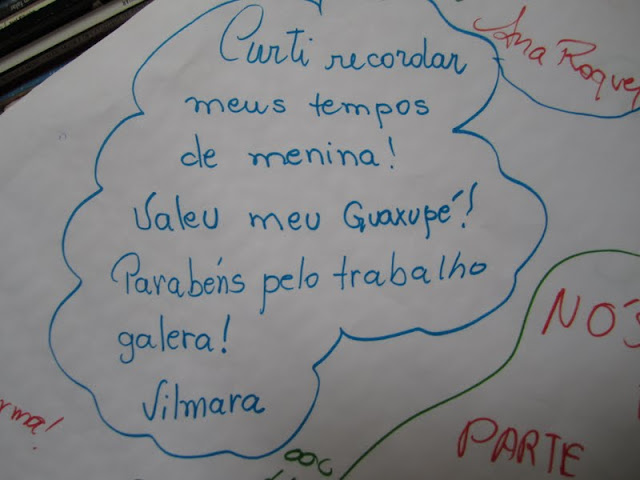 Curti recordar
meus tempos
de menina!
Valeu meu Guaxupé!
Parabéns pelo trabalho
galera!
Vilmara
Ana Roque
PARTE